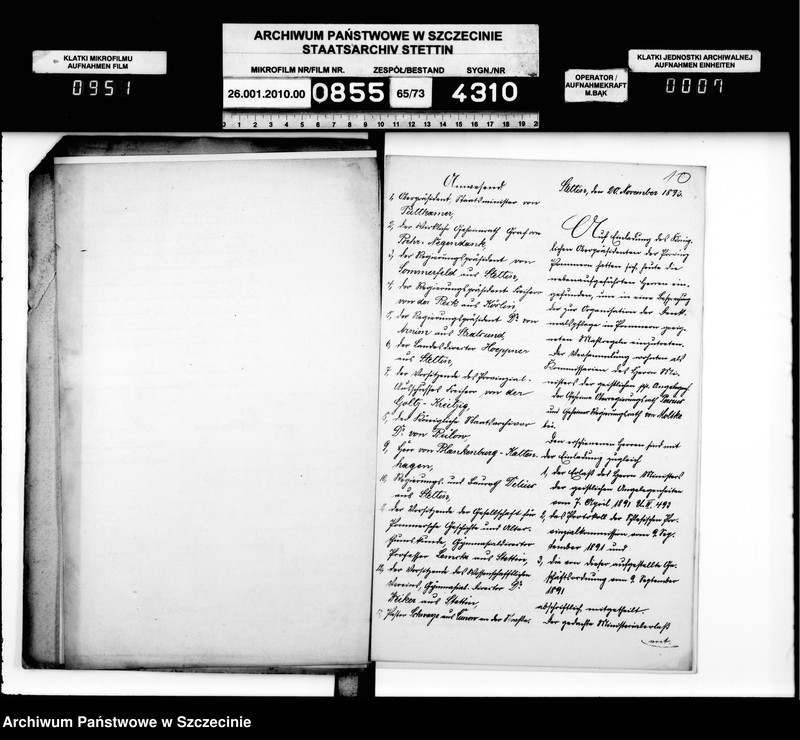 ARCHIWUM PAŃSTWOWE W SZCZECINIE
STAATSARCHIV STETTIN
KLATKI MIKROFILMU
AUFNAHMEN FILM
0951
MIKROFILM NR/FILM NR.
ZESPÓŁ/BESTAND
SYGN./NR
26.001.2010.00
0855
65/73
4310
OPERATOR /
AUFNAHMEKRAFT
M.BĄK
KLATKI JEDNOSTKI ARCHIWALNEJ
AUFNAHMEN EINHEITEN
0007
0 1 2 3 4 5 6 7 8 9 10 11 12 13 14 15 16 17 18 19
10
Anwesend
1, Oberpräsident, Staatsminister von
Puttkamer,
2, der Wirkliche Geheimrath Graf von
Behr-Negendank,
3, der Regierungspräsident von
Sommerfeld aus Stettin,
4, der Regierungspräsident Freiherr
von der Reck aus Köslin
5, der Regierungspräsident Dr von
Arnim aus Stralsund,
6, der Landesdirector Hoeppner
aus Stettin,
7, der Vorsitzende des Provinzial-
Ausschusses Freiherr von der
Goltz-Kreitzig,
8, der Königliche Staatsarchivar
Dr von Bülow,
9, Herr von Blankenburg-Katten-
hagen,
10, Regierungs- und Baurath Delius
aus Stettin,
11, der Vorsitzende der Gesellschaft für
Pommersche Geschichte und Alter-
thumskunde, Gymnasialdirector
Professor Lemcke aus Stettin,
12, der Vorsitzende des Wissenschaftlichen
Vereins, Gymnasial-director Dr
Weiker aus Stettin,
Pastor aus an der
Stettin, den 20. November 1893.
Auf Einladung des König-
lichen Oberpräsidenten der Provinz
Pommern hatten sich heute die
nebenaufgeführten Herren ein-
gefunden, um in eine Besprechung
der zur Organisation der Denk-
malspflege in Pommern geeig-
neten Maßregeln einzutreten.
Der Versammlung wohnten als
Kommissarien des Herrn Mi-
nisters der geistlichen pp. Angelegenh.
der Geheime Oberregierungsrath Persius
und Geheime Regierungsrath von Moltke
bei.
Den erschienenen Herren sind mit
der Einladung zugleich
1, der Erlaß des Herrn Ministers
der geistlichen Angelegenheiten
vom 7. April 1891
2, das Protokoll der Schlesischen Pro-
vinzialkommission vom 9. Sep-
tember 1891 und
3, die von dieser aufgestellte Ge-
schäftsordnung vom 9. September
1891
abschriftlich mitgetheilt.
Der gedachte Ministerialerlaß
Archiwum Państwowe w Szczecinie